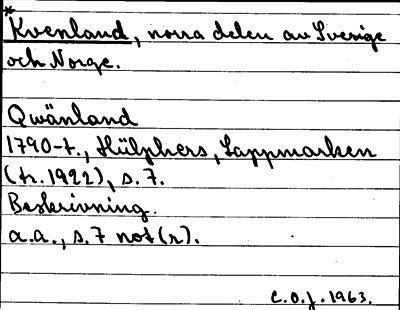 *
Kvenland, norra delen av Sverige
och Norge.
Qwänland
1790-t., Hülphers, Lappmarken
(tr. 1922), s. 7.
Beskrivning.
a.a., s. 7 not (r).
C.O.J. 1963.